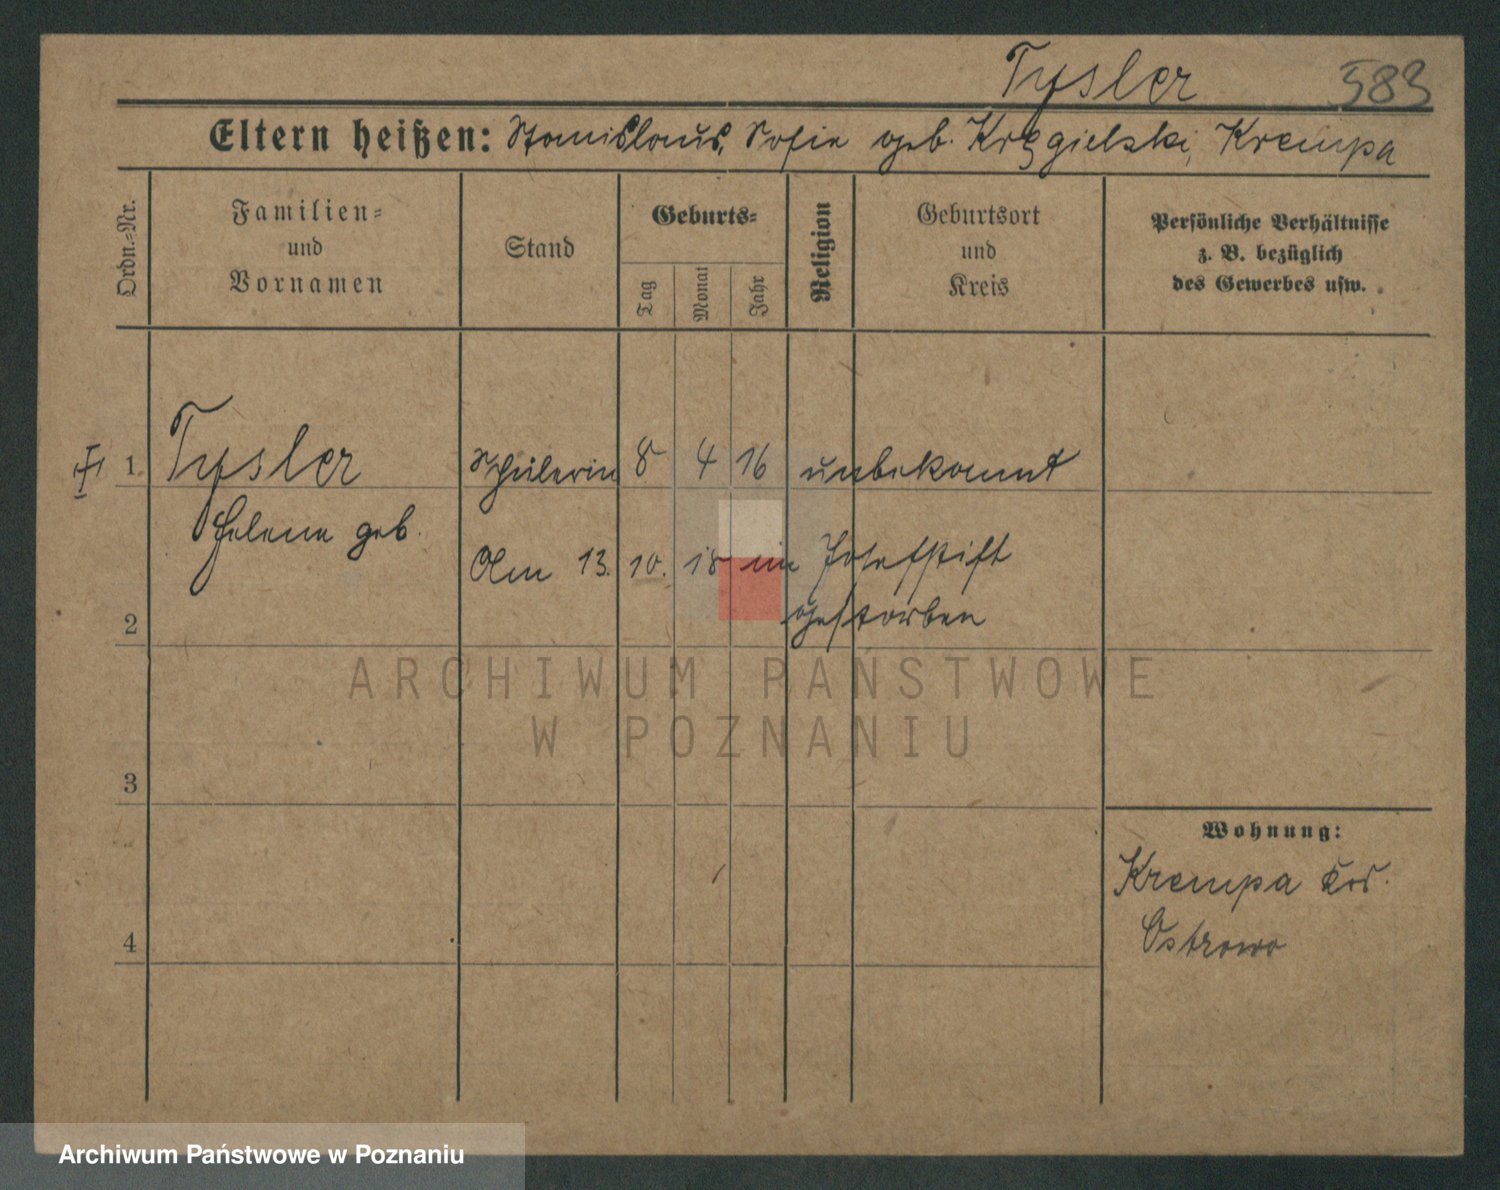 Tysler 583
Eltern heißen: Stanislaus, Sofie geb. Kręgielski, Krempa
Ordn.=Nr.
Familien=
und
Vornamen
Stand
Geburts=
Tag
Monat
Jahr
Religion
Geburtsort
und
Kreis
Persönliche Verhältnisse
z. B. bezüglich
des Gewerbes usw.
1 Tysler Schülerin 8 4 16 unbekannt
Helene geb.
Am 13. 10. 18 im Josefstift
gestorben
2
3
4
Wohnung:
Krempa Krs.
Ostrowo
ARCHIWUM PAŃSTWOWE
W POZNANIU
Archiwum Państwowe w Poznaniu